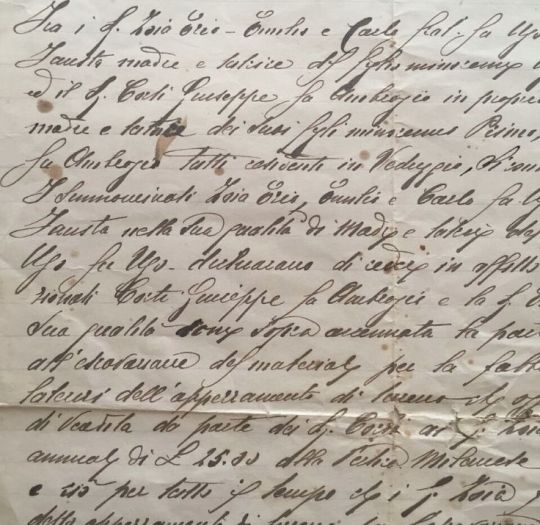 Tra i S. Zoia Ezio - Emilio e Carlo frat. fu Ugo
Fausta madre e tutrice del figlio minorenne
ed il S. Corti Giuseppe fu Ambrogio in propri
madre e tutrice dei suoi figli minorenni Primo,
fu Ambrogio tutti residenti in Vedeggio,
I summenzionati Zoia Ezio, Emilio e Carlo fu U
Fausta nella sua qualità di Madre e tutrice del
Ugo fu Ugo - dichiarano di cedere in affitto
zionati Corti Giuseppe fu Ambrogio e la S.
sua qualità come sopra accennata la par
all'estrazione del material per la fabb
laterizi dell'appezzamento di terreno
di vendita da parte dei S. Corti ai S. Zoia
annual di £ 25.00 alla Pertica Milanese
e ciò per tutto il tempo che i S. Zoia
della appezzamento di terreno